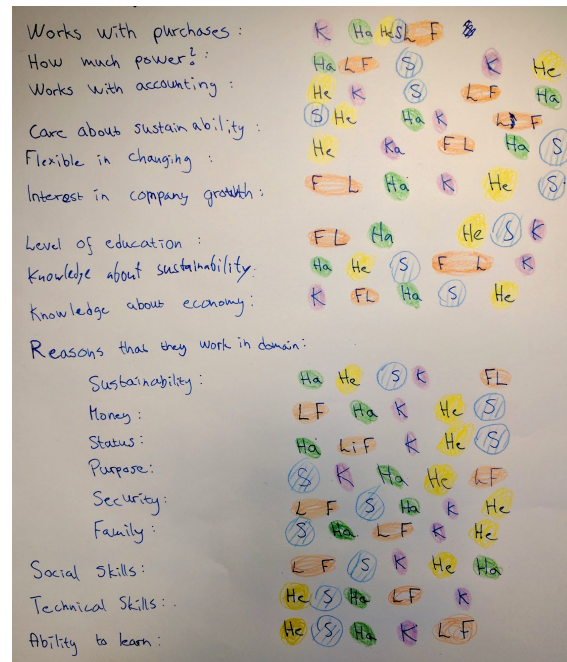 Works with purchases : K Ha He S L F
How much power? : Ha L F S K He
Works with accounting : He K S L F Ha
Care about sustainability : S He Ha K L F
Flexible in changing : He Ka F L Ha S
Interest in company growth : F L Ha K He S
Level of education : F L Ha He S K
Knowledge about sustainability: Ha He S F L K
Knowledge about economy: K FL Ha S He
Reasons that they work in domain:
Sustainability : Ha He S K FL
Money : L F Ha K He S
Status : Ha LiF K He S
Purpose: S K Ha He LF
Security: L F S Ha K He
Family : S Ha L F K He
Social Skills: L F S K He Ha
Technical Skills: He S Ha L F K
Ability to learn: He S Ha K L F